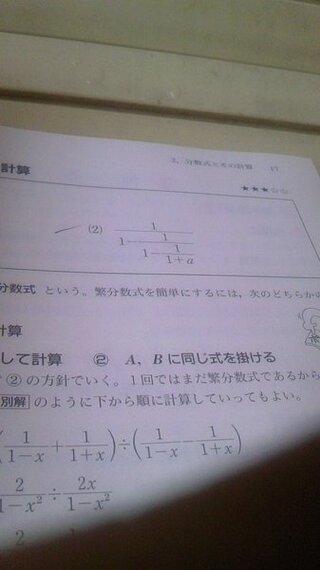 2. 分数式とその計算 17
計算
★★★☆☆
(2) 1/(1-1/(1-1/(1+a)))
分数式 という。繁分数式を簡単にするには、次のどちらかの
計算
して計算 ② A, B に同じ式を掛ける
② の方針でいく。1回ではまだ繁分数式であるから
別解 のように下から順に計算していってもよい。
(1/(1-x) + 1/(1+x)) ÷ (1/(1-x) - 1/(1+x))
2/(1-x²) ÷ 2x/(1-x²)
2